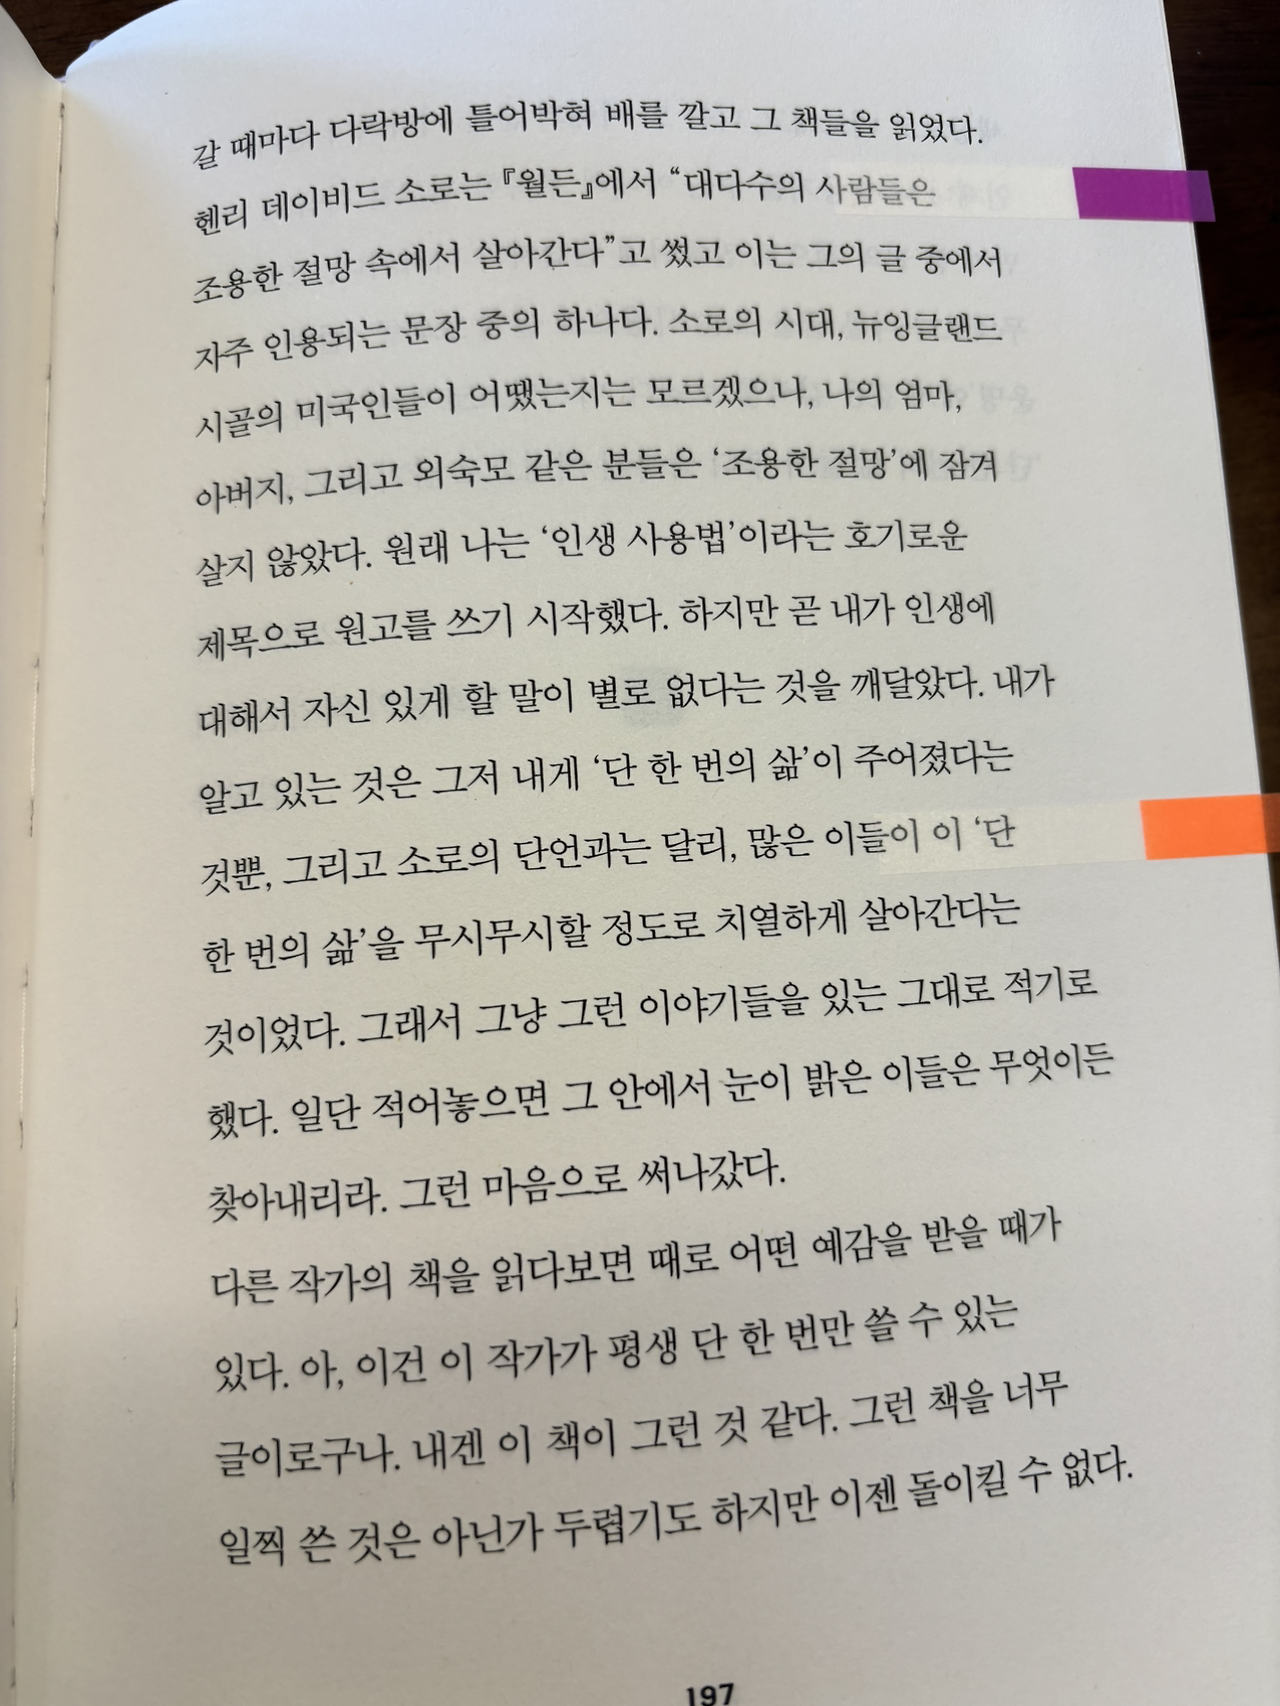 갈 때마다 다락방에 틀어박혀 배를 깔고 그 책들을 읽었다.
헨리 데이비드 소로는 『월든』에서 “대다수의 사람들은
조용한 절망 속에서 살아간다”고 썼고 이는 그의 글 중에서
자주 인용되는 문장 중의 하나다. 소로의 시대, 뉴잉글랜드
시골의 미국인들이 어땠는지는 모르겠으나, 나의 엄마,
아버지, 그리고 외숙모 같은 분들은 ‘조용한 절망’에 잠겨
살지 않았다. 원래 나는 ‘인생 사용법’이라는 호기로운
제목으로 원고를 쓰기 시작했다. 하지만 곧 내가 인생에
대해서 자신 있게 할 말이 별로 없다는 것을 깨달았다. 내가
알고 있는 것은 그저 내게 ‘단 한 번의 삶’이 주어졌다는
것뿐, 그리고 소로의 단언과는 달리, 많은 이들이 이 ‘단
한 번의 삶’을 무시무시할 정도로 치열하게 살아간다는
것이었다. 그래서 그냥 그런 이야기들을 있는 그대로 적기로
했다. 일단 적어놓으면 그 안에서 눈이 밝은 이들은 무엇이든
찾아내리라. 그런 마음으로 써나갔다.
다른 작가의 책을 읽다보면 때로 어떤 예감을 받을 때가
있다. 아, 이건 이 작가가 평생 단 한 번만 쓸 수 있는
글이로구나. 내겐 이 책이 그런 것 같다. 그런 책을 너무
일찍 쓴 것은 아닌가 두렵기도 하지만 이젠 돌이킬 수 없다.
197